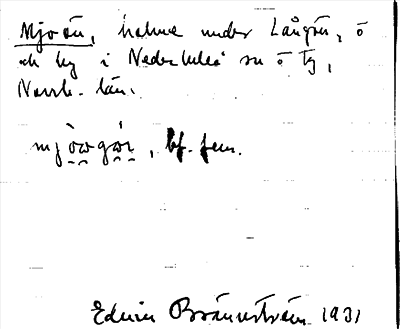 Mjoön, holme under Långön, ö
och by i Nederluleå sn ö Tj,
Norrb. län.
mjòwgọ̀n, bf. fem.
Edvin Brännström 1931